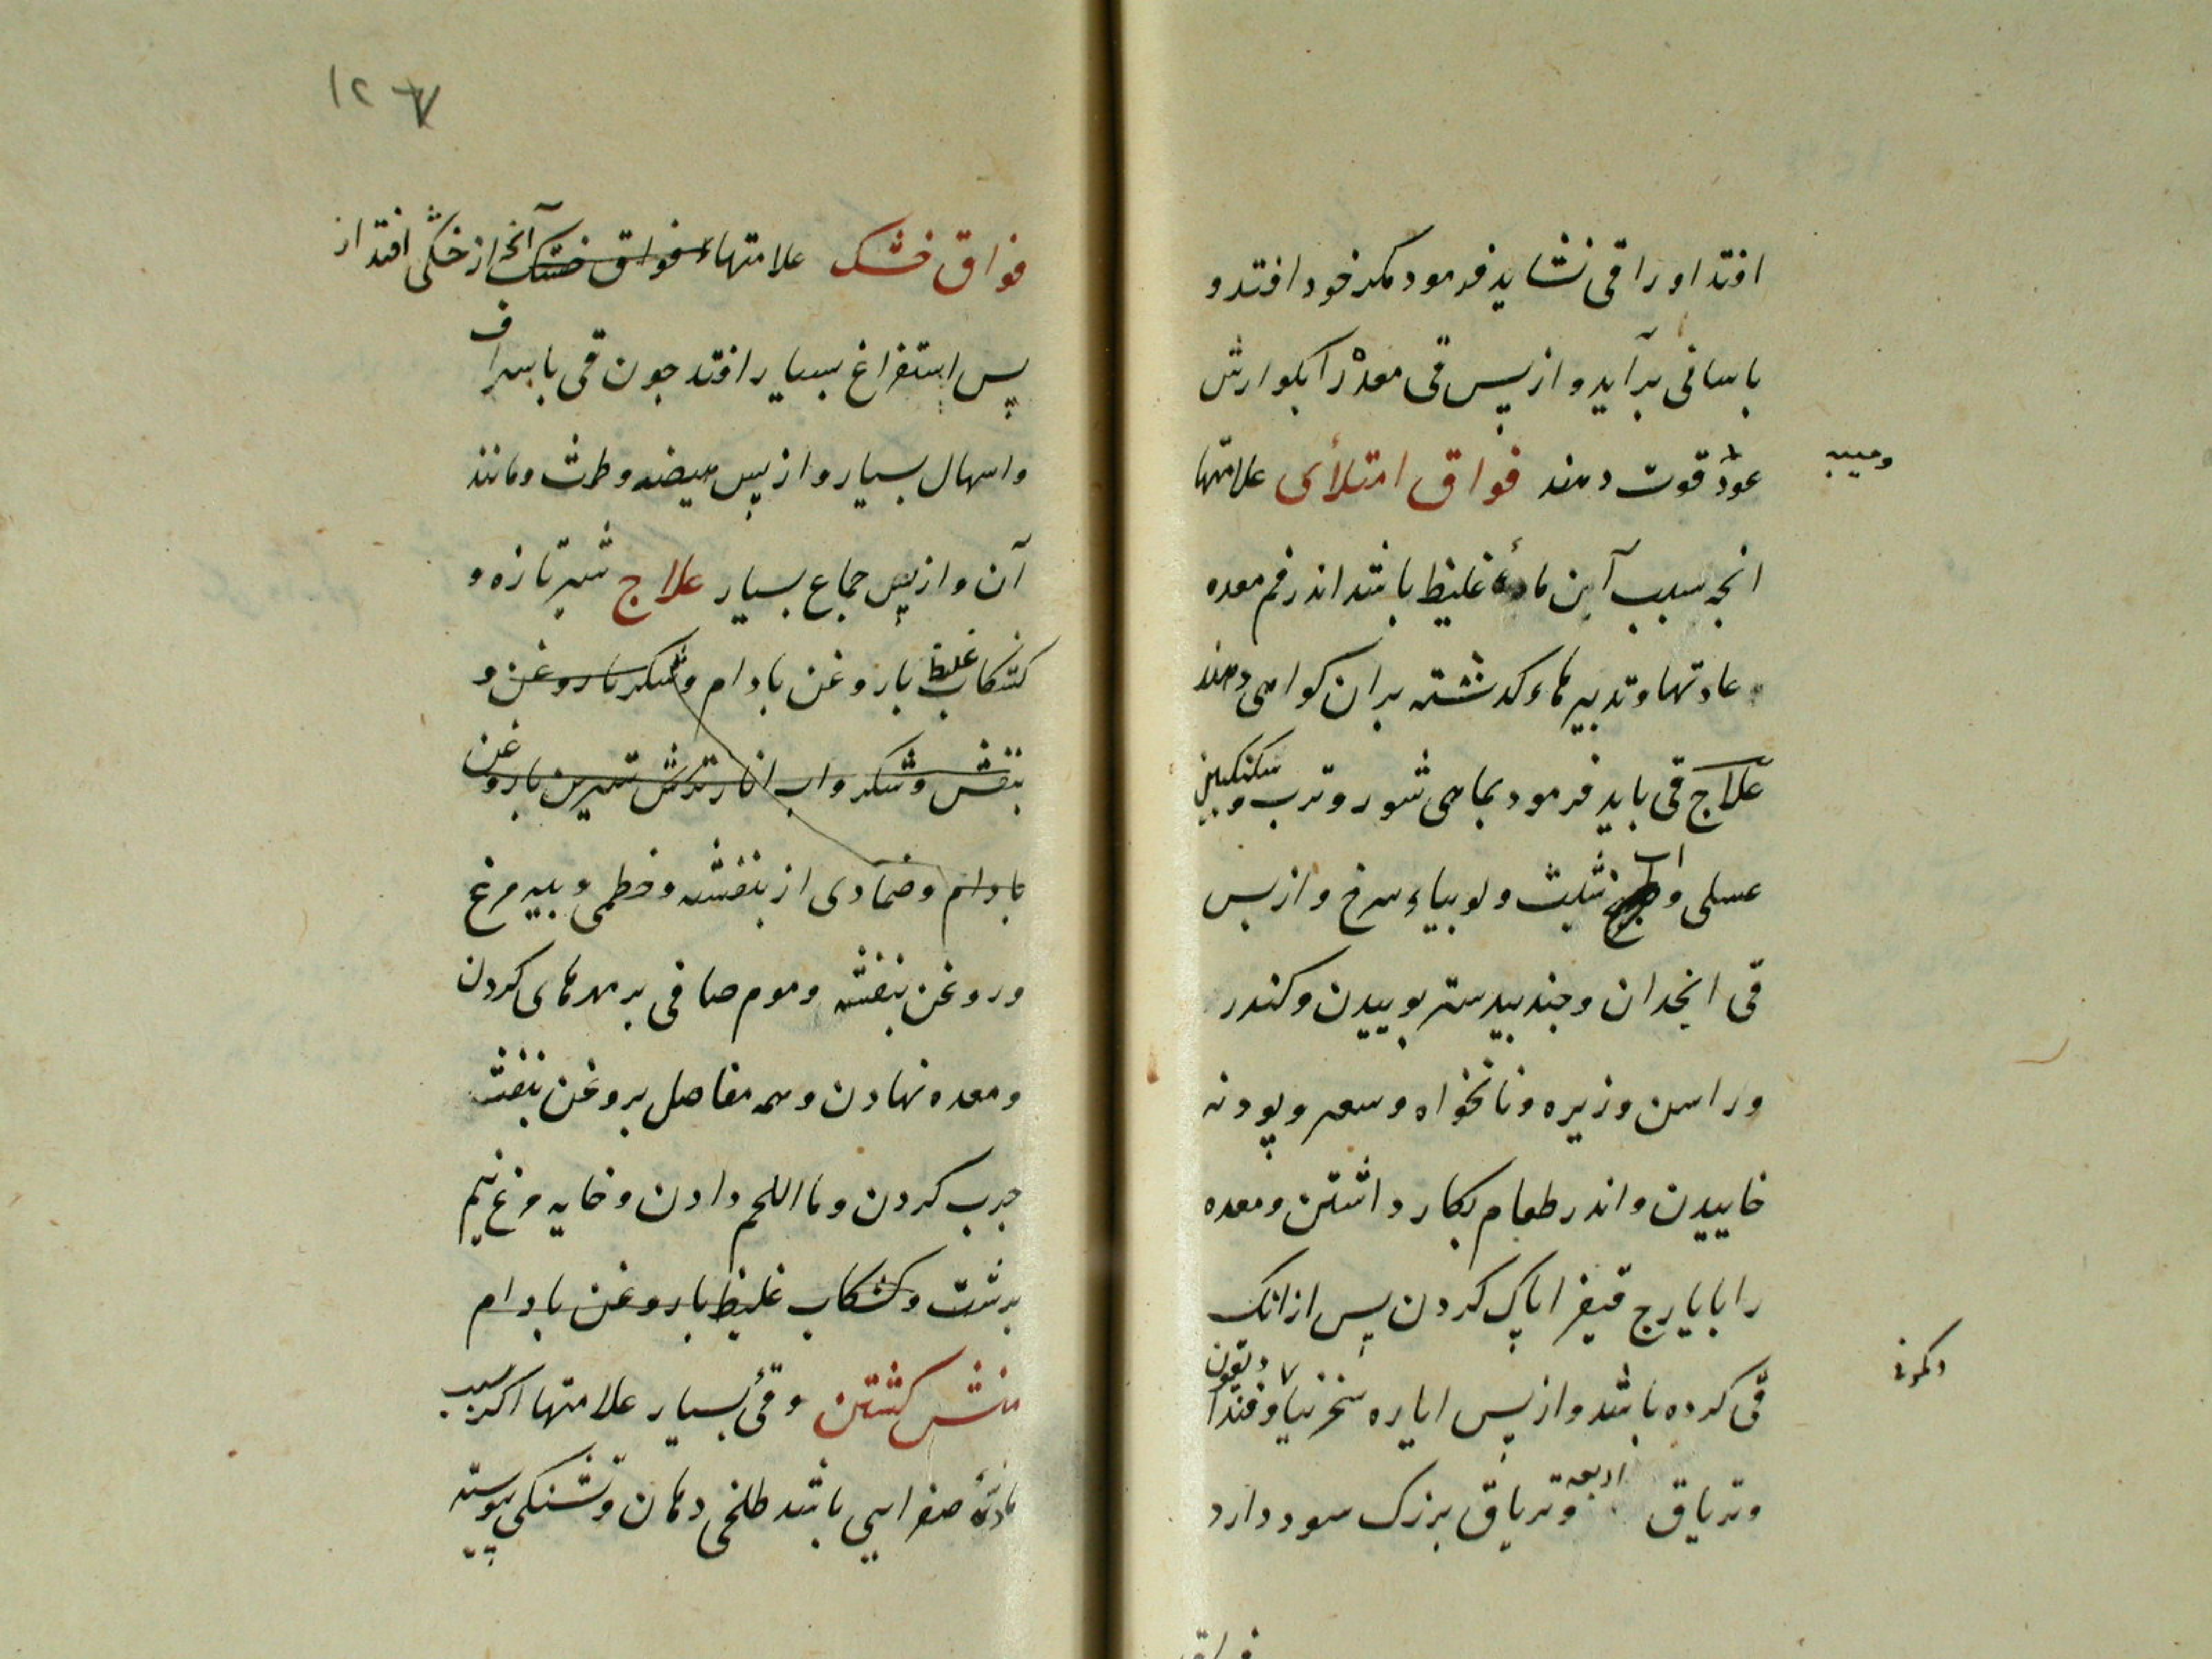 افتد او را قی نشاید فرمود مکر خود افتد و
باسانی برآید و از پس قی معده را بکوارش
عود قوت دهند فواق امتلائی علامتها
ومیبه
انچه سبب آین مادهٔ غلیظ باشد اندر فم معده
عادتها و تدبیرهاء کذشته بران کواهی دهند
علاج قی باید فرمود بماهی شور و ترب و سکنکبین
عسلی و اب شبت و لوبیاء سرخ و از پس
قی انجدان و جندبیدستر بوییدن و کندر
و راسن و زیره و نانخواه و سعتر و پودنه
خاییدن و اندر طعام بکار داشتن و معده
را بایارج فیقرا پاک کردن پس از انک
قی کرده باشد و از پس ایاره سنجرنیا و
وتریاق اربعه وتریاق بزرک سود دارد
فواق
۱۲۷
فواق خشک علامتهاء فواق خشک آنچه از خشکی افتد از
پس استفراغ بسیار افتد جون قی باسراف
واسهال بسیار و از پس هیضه و طمث و مانند
آن و از پس جماع بسیار علاج شیر تازه و
کشکاب غلیظ با روغن بادام و شکر با روغن و
بنفش و شکر و اب انار ترش شیرین با روغن
بادام و ضمادی از بنفشه و خطمی و پیه مرغ
و روغن بنفشه و موم صافی بر مهرهای کردن
و معده نهادن و همه مفاصل بروغن بنفشه
جرب کردن و ما اللحم دادن و خایه مرغ نیم
برشت و کشکاب غلیظ با روغن بادام
منش کشتن و قیٔ بسیار علامتها اکر سبب
مادهٔ صفرایی باشد طلخی دهان و تشنکی پیوسته